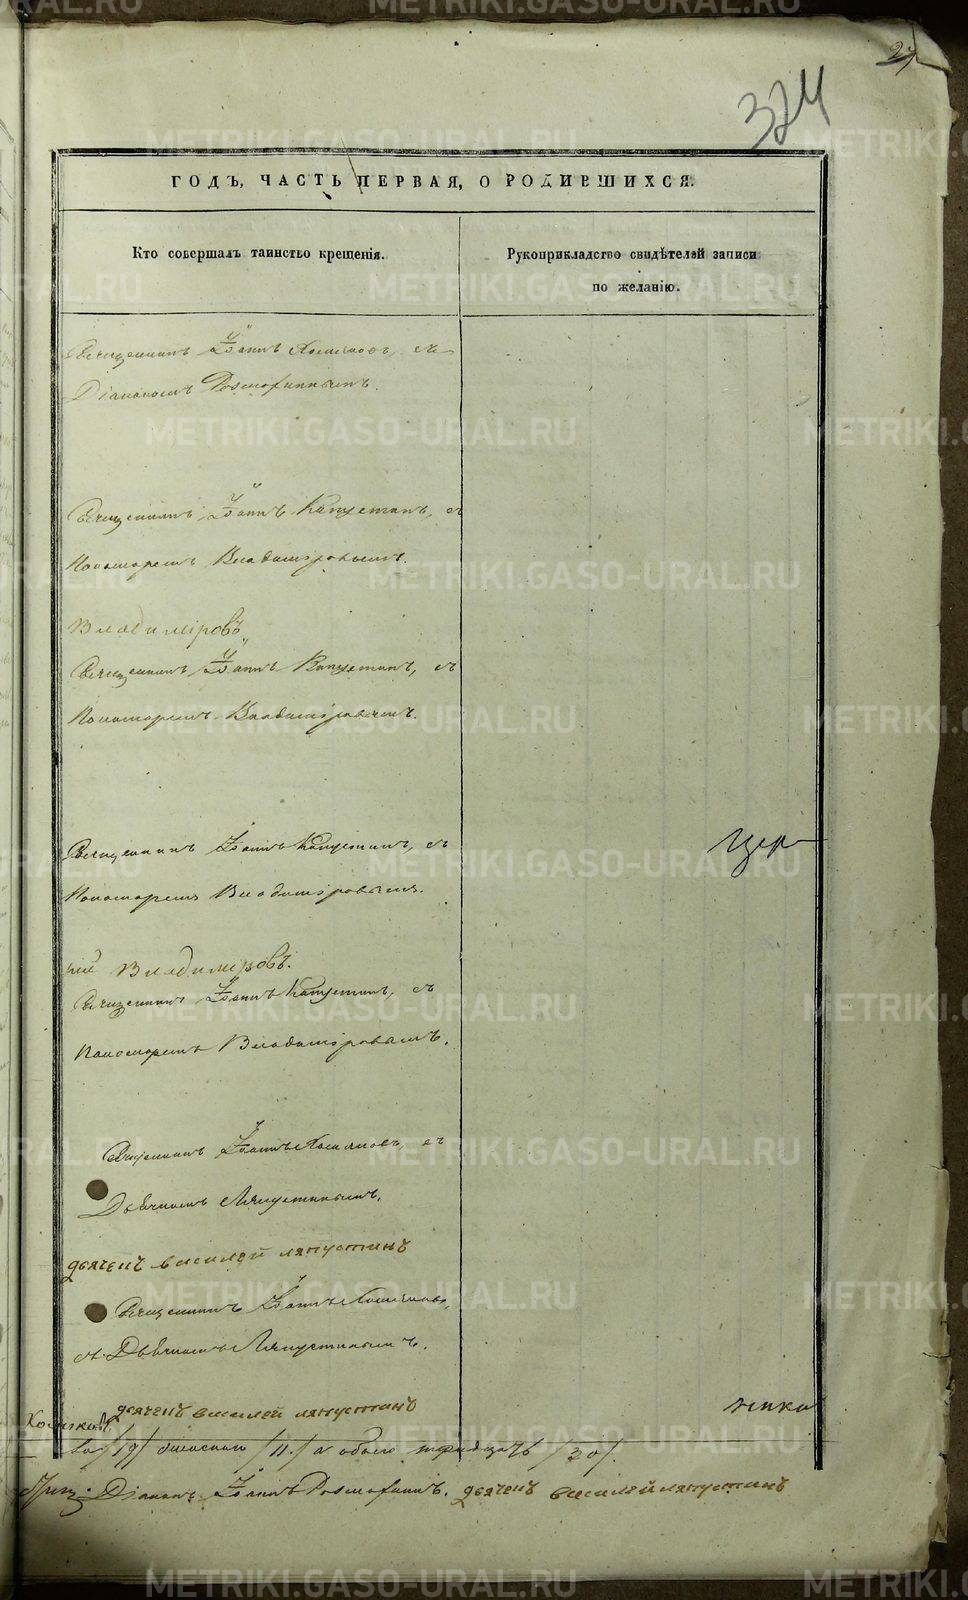 27
324
ГОДЪ, ЧАСТЬ ПЕРВАЯ, О РОДИВШИХСЯ.
Кто совершалъ таинство крещенія.
Рукоприкладство свидѣтелей записи
по желанію.
Священникъ Іоаннъ съ
Діакономъ
Священникъ Іоаннъ Капустинъ, съ
Пономаремъ Владиміровымъ.
Владиміровъ
Священникъ Іоаннъ Капустинъ, съ
Пономаремъ Владиміровымъ.
Священникъ Іоаннъ Капустинъ, съ
Пономаремъ Владиміровымъ.
Владиміровъ.
Священникъ Іоаннъ Капустинъ, съ
Пономаремъ Владиміровымъ.
Священникъ Іоаннъ съ
Дьячкомъ Ляпустинымъ.
дьячекъ василей ляпустинъ
Священникъ Іоаннъ
съ Дьячкомъ Ляпустинымъ.
дьячекъ василей ляпустинъ
/19/ женскаго /11/ а обоего тридцать /30/.
Діаконъ Іоаннъ дьячекъ василей ляпустинъ
METRIKI.GASO-URAL.RU